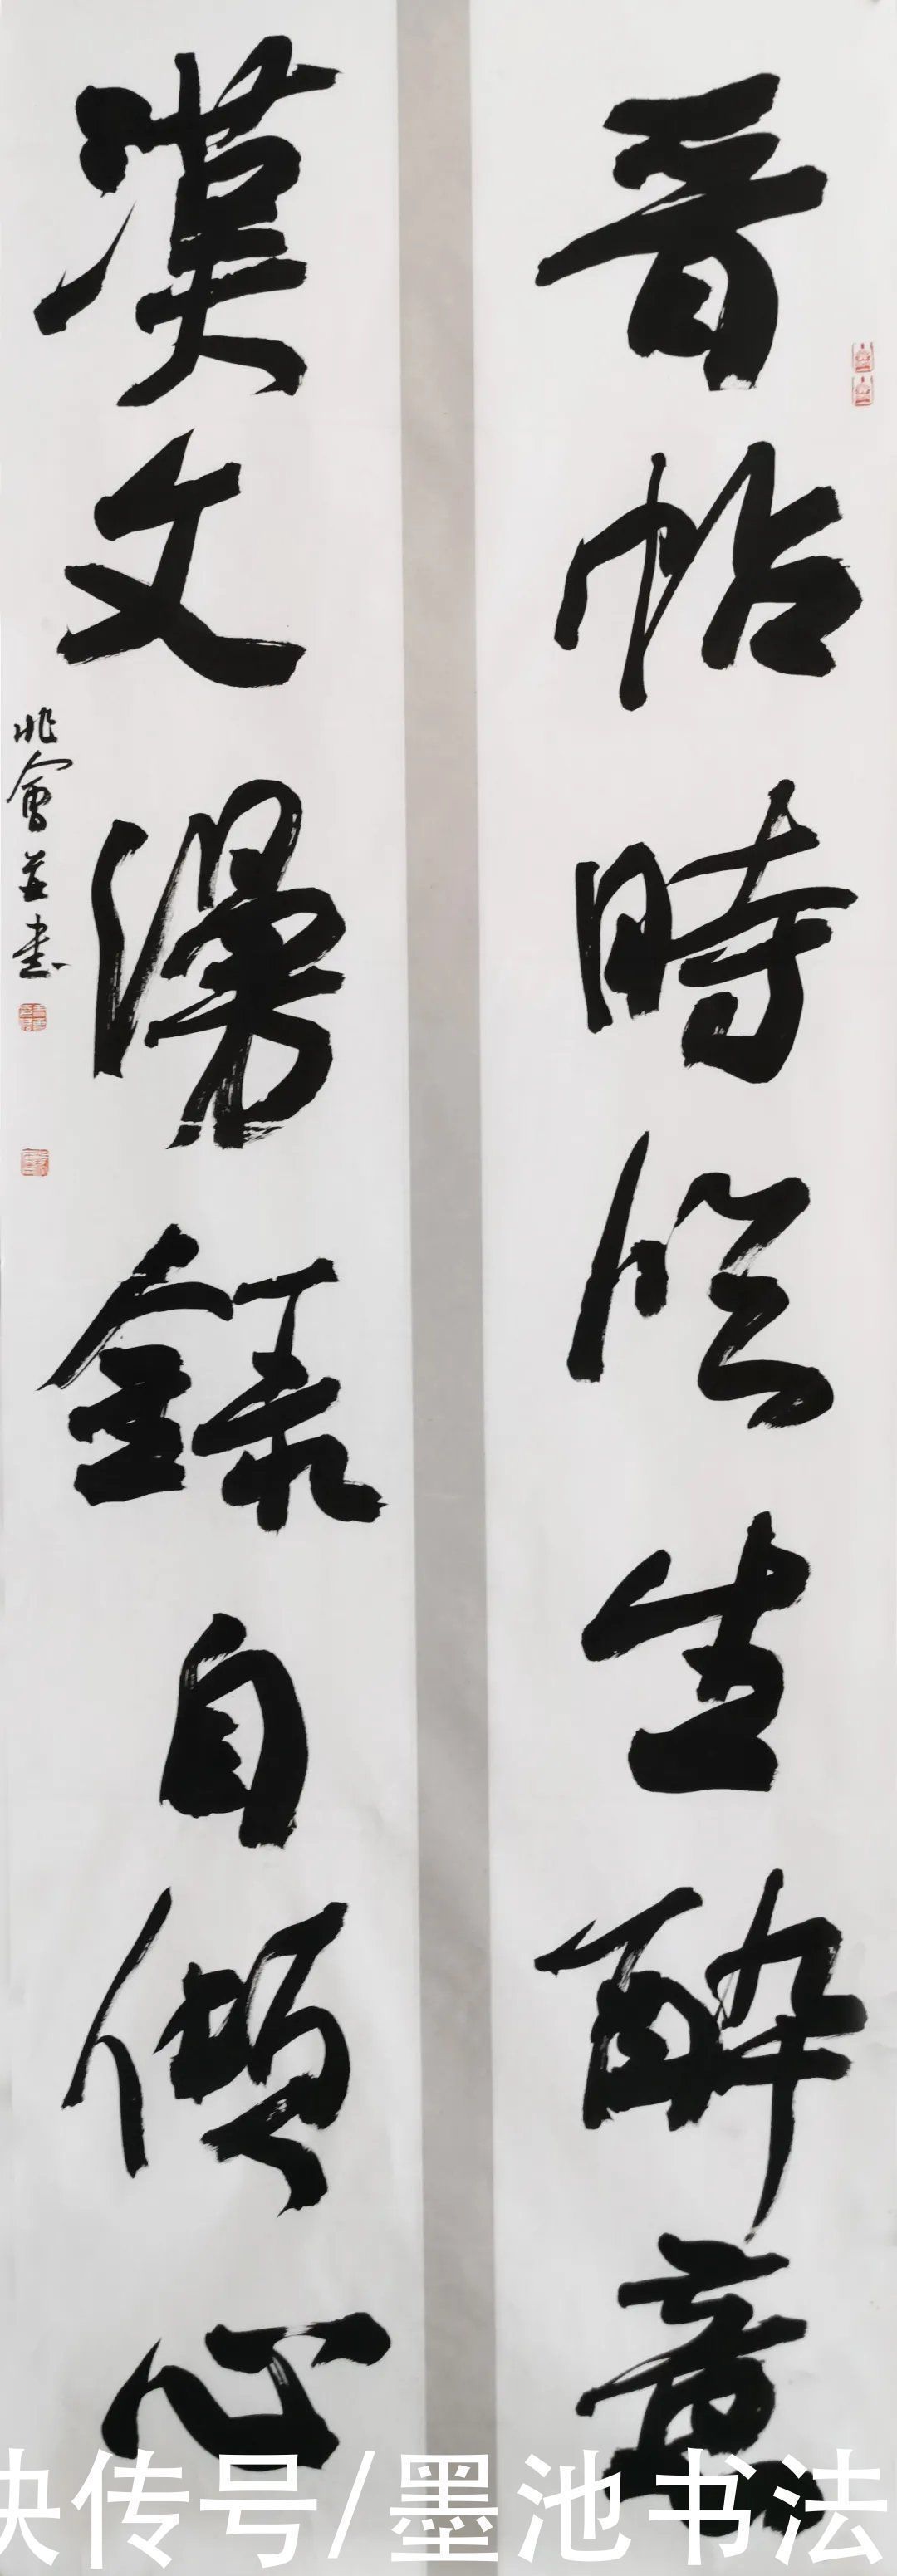 晋帖時临生醉意
漢文漫錄自傾心
兆會并書
快传号/墨池书法